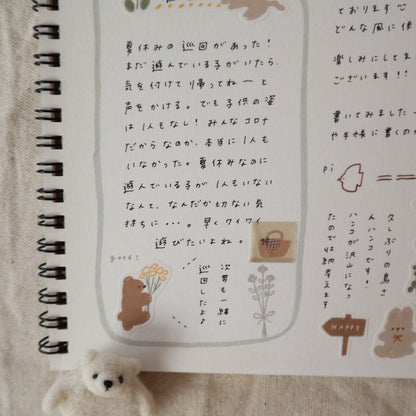 夏休みの巡回があった!
まだ遊んでいる子がいたら、
気を付けて帰ってね〜と
声をかける。でも子供の姿
は1人もなし!みんなコロナ
だからなのか、本当に1人も
いなかった。夏休みなのに
遊んでいる子が1人もいない
なんて、なんだか切ない気
持ちに…。早くワイワイ
遊びたいよね。
good!
次男も一緒に
巡回したよ♪
ております
どんな風に使
楽しみにしてま
ございます!!
書いてみました
や手帳に書くの
pi
久しぶりの鳥さ
んハンコです!
ハンコが沢山になっ
たので収納考えます
HAPPY